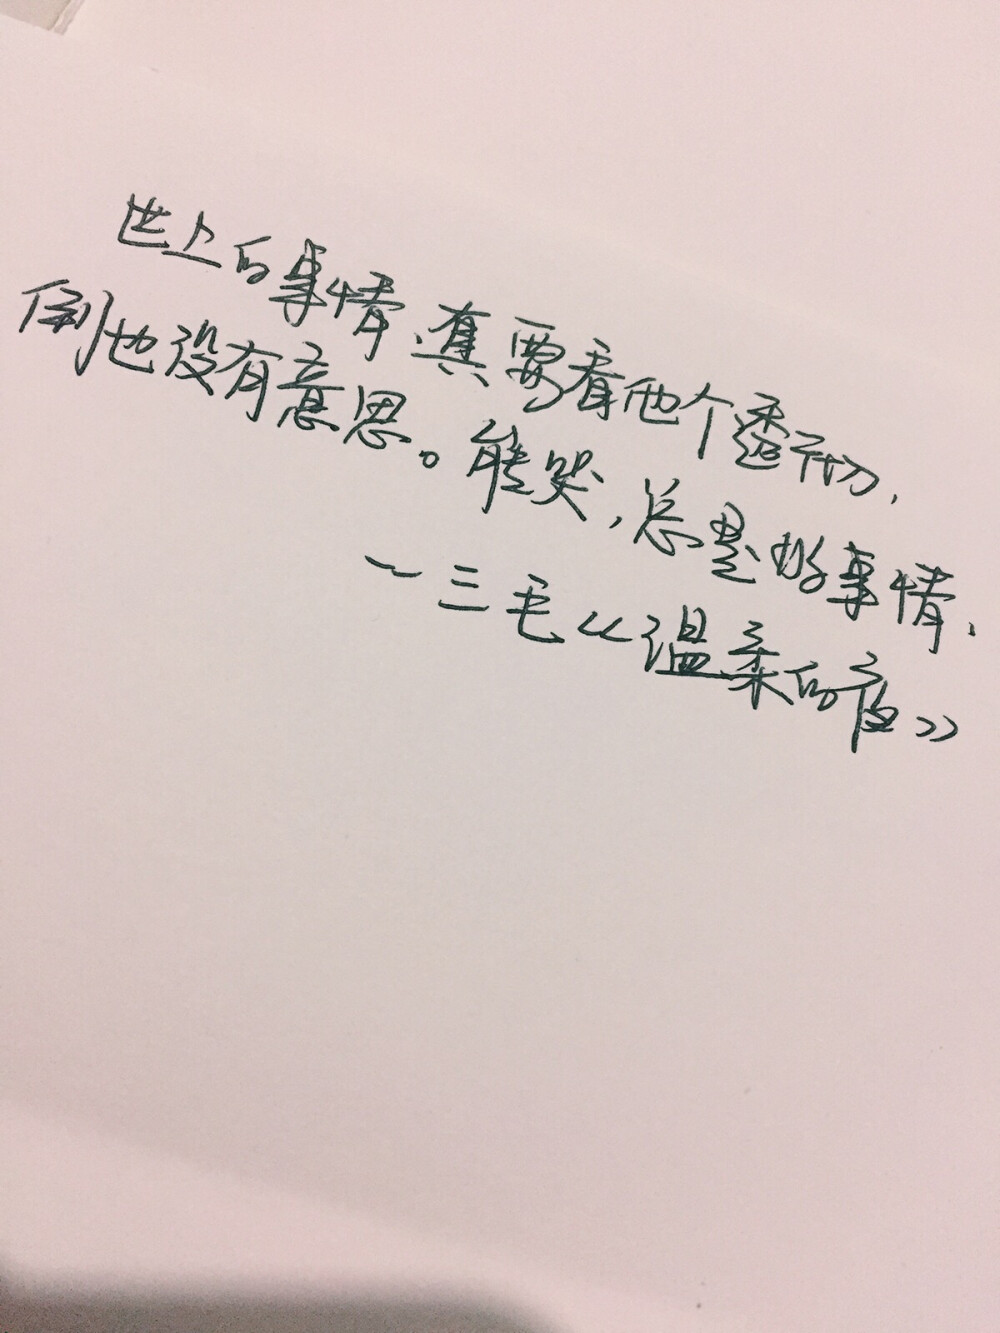 世上的事情，真要看他个透彻，
倒也没有意思。能哭，总是好事情。
—三毛《温柔的夜》